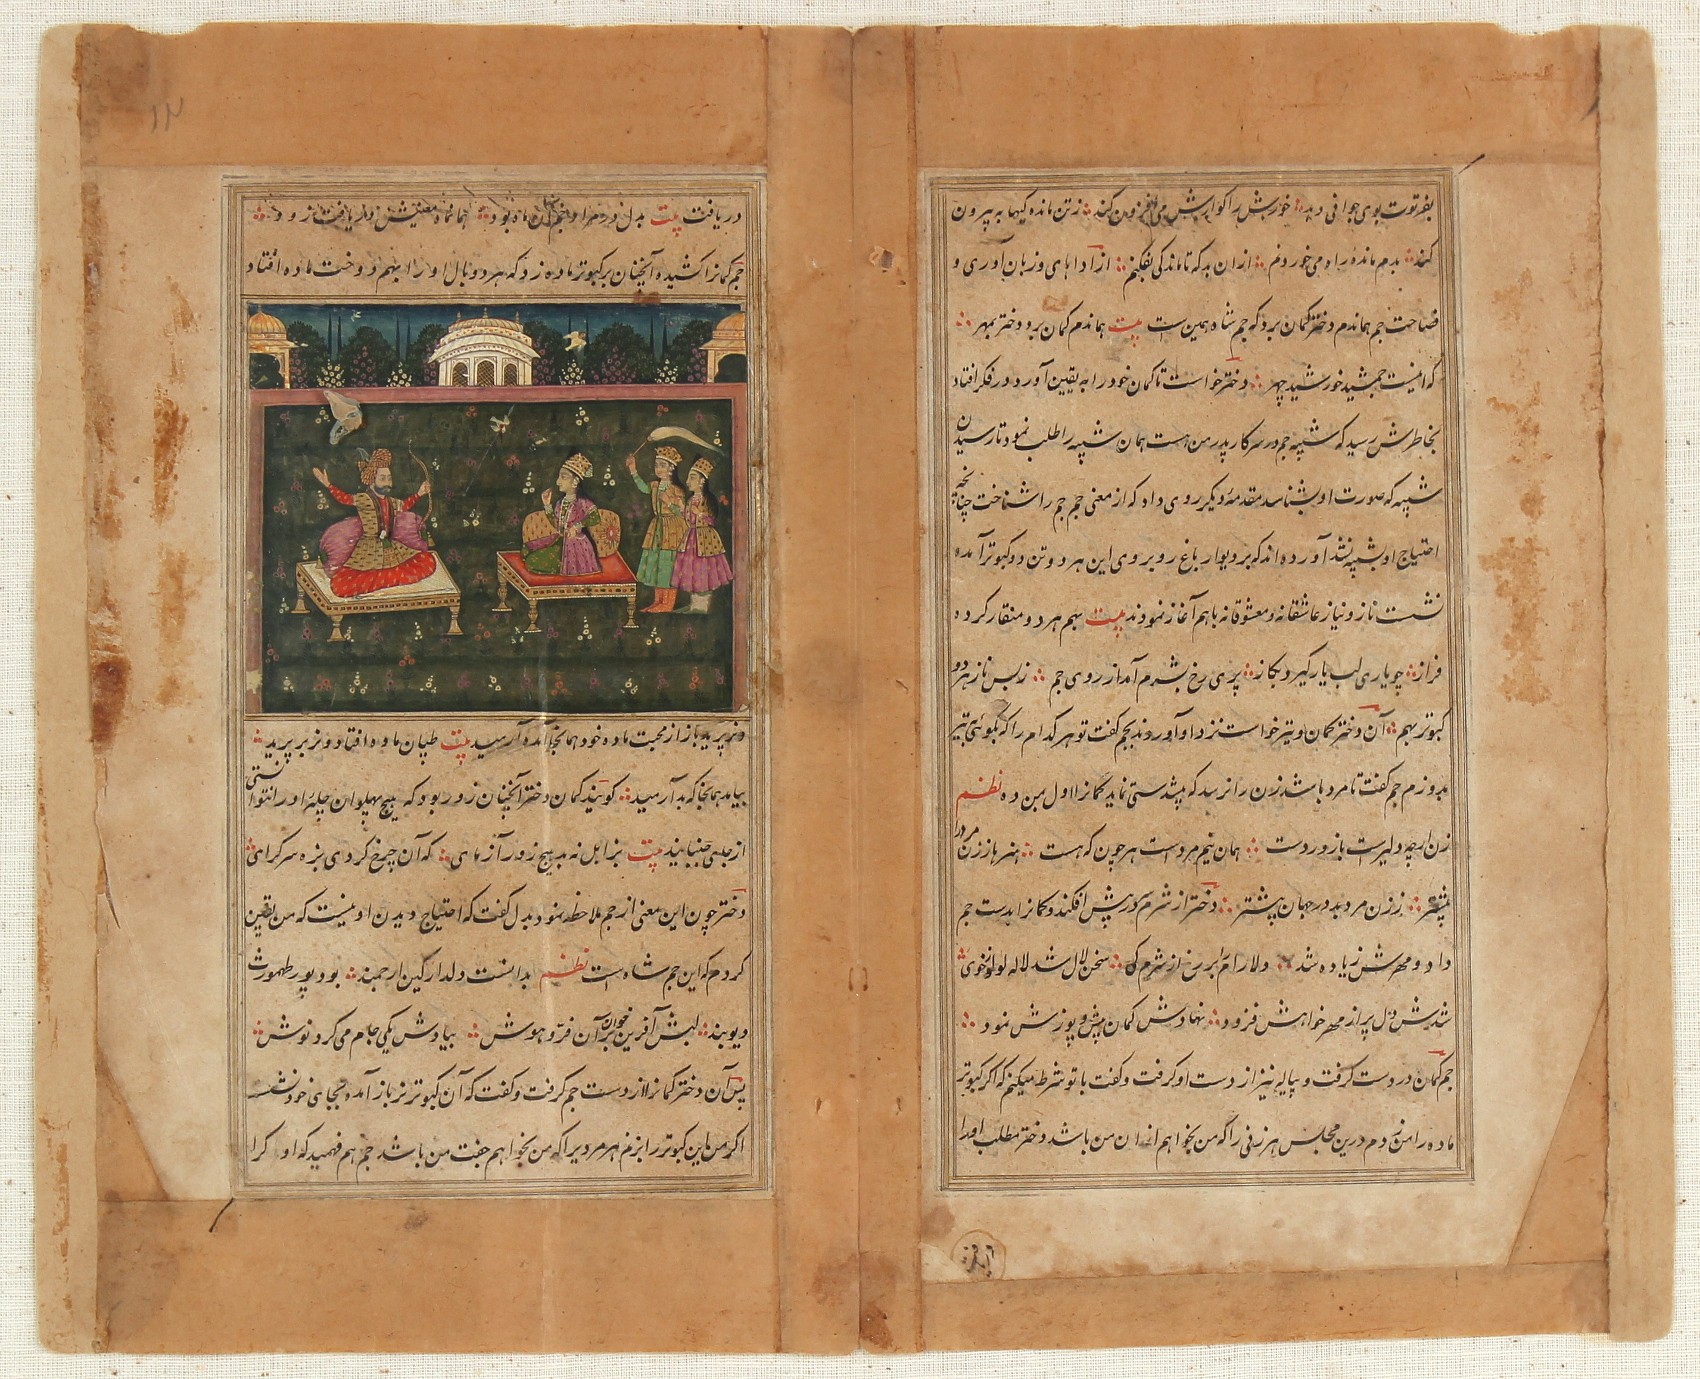 بفرتوت بوی جوانی دهد خورش را گوارش می افزون کند ز تن مانده کیها به بیرون
کند بدم مانده راه می خوردنم ازان به که تا ماندگی بفکنم از اداهای و زبان آوری و
فصاحت جم هماندم دختر گمان برد که جم شاه همین ست بیت هماندم گمان برد دختر بمهر
که اینست جمشید خورشید چهر دختر خواست تا گمان خود را به یقین آورد در فکر افتاد
بخاطرش رسید که شبیه جم در سرکار پدر من است همان شبیه را طلب نمود تا رسیدن
شبیه که صورت او بشناسد مقدمهٔ دیگر روی داد که از معنی جم جم را شناخت چنانچه
احتیاج او بشبیه نشد آورده اند که بر دیوار باغ روبروی این هر دو تن دو کبوتر آمده
نشست ناز و نیاز عاشقانه و معشوقانه باهم آغاز نمودند بیت بهم هر دو منقار کرده
فراز چو یاری لب یار گیرد بگاز پری رخ بشرم آمد از روی جم ز بس ناز هر دو
کبوتر بهم آن دختر کمان و تیر خواست نزد او آوردند بجم گفت تو هر کدام را که بگوئی به تیر
بدوزم جم گفت تا مرد باشد زن را نرسد که پیشدستی نماید کمانرا اول بمن ده نظم
زن ارچه دلیرست با زور دست همان نیم مردست هر چون که هست هنرها ز زن مرد را
بیشتر ز زن مرد بد در جهان پیشتر دختر از شرم سر در پیش افکند و کمانرا بدست جم
داد و مهرش زیاده شد دلارام را بر رخ از شرم کی سخن لال شد لاله لولو خوی
شدش دل پر از مهر خواهش فزود نهادش کمان پیش و پوزش نمود
جم کمان در دست گرفت و پیاله نیز از دست او گرفت و گفت با تو شرط میکنم که اگر کبوتر
ماده را من زدم درین مجلس هر زنی را که من بخواهم از ان من باشد دختر مطلب او را
دریافت بیت بدل در مر او بود هماندم
جم کمانرا کشیده آنچنان بر کبوتر ماده زد که هر دو بال او را بهم دوخت ماده افتاد
و نر پرید باز از محبت ماده خود همانجا آمده آرمید بیت طپان ماده افتاد و نر بر پرید
بیامد همانجا که بد آرمید گویند کمان دختر آنچنان زور بود که هیچ پهلوان چلهٔ او را نتوانستی
از جای جنبانید بیت بزابل نه بد هیچ زور آزمای که آن چرخ کردی بزه سرگرای
دختر چون این معنی از جم ملاحظه نمود بدل گفت که احتیاج دیدن او نیست که من یقین
کردم که این جم شاه است نظم بدانست دلدار کین ارجمند بود پور طهمورث
دیوبند لبش آفرین خوان بر آن فر و هوش بیادش یکی جام می کرد نوش
پس آن دختر کمانرا از دست جم گرفت و گفت که آن کبوتر نر باز آمده بجای خود نشست
اگر من این کبوتر را بزنم هر مردیرا که من بخواهم جفت من باشد جم هم فهمید که او کرا